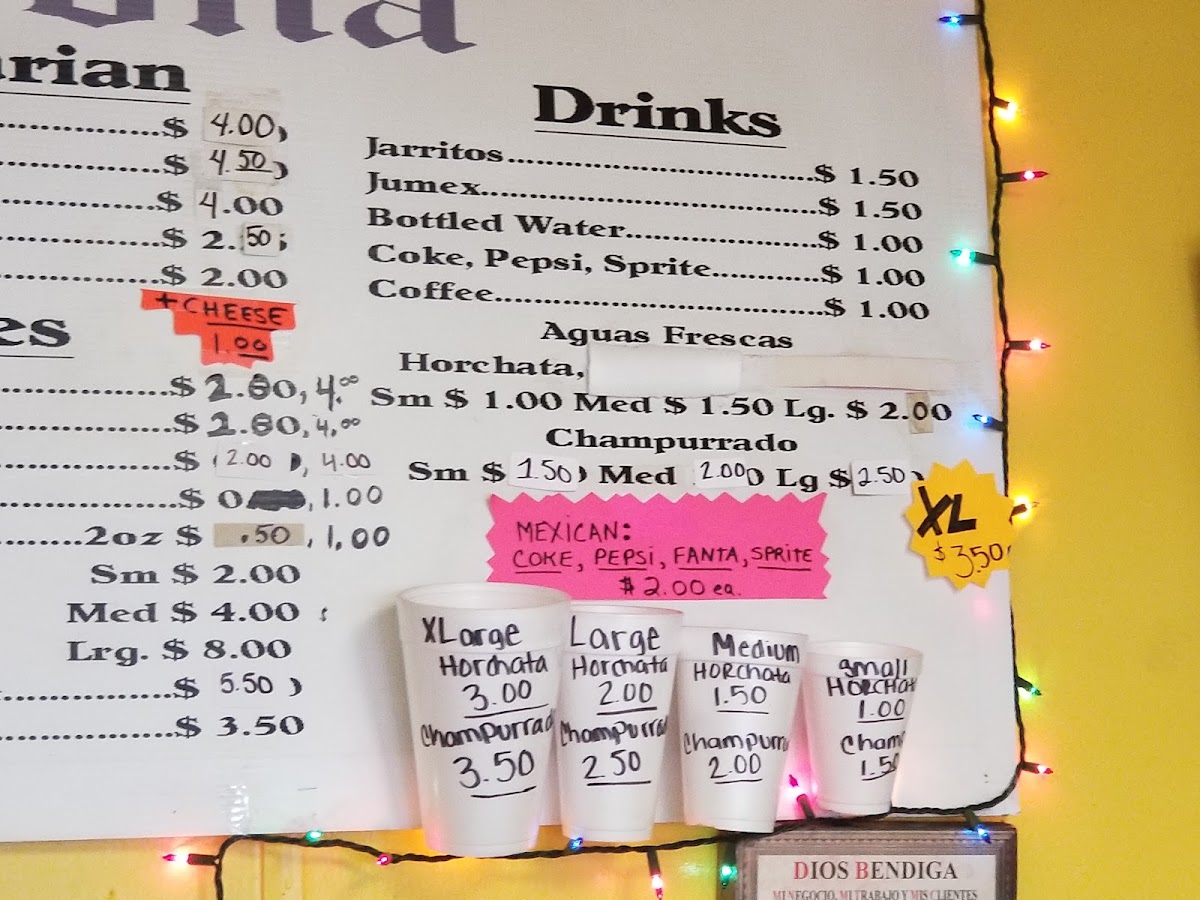 rian
$ 4.00
$ 4.50
$ 4.00
$ 2.50
$ 2.00
+ CHEESE
1.00
es
$ 2.00, 4.00
$ 2.00, 4.00
$ 2.00, 4.00
$ 0, 1.00
2oz $ .50, 1,00
Sm $ 2.00
Med $ 4.00
Lrg. $ 8.00
$ 5.50
$ 3.50
Drinks
Jarritos $ 1.50
Jumex $ 1.50
Bottled Water $ 1.00
Coke, Pepsi, Sprite $ 1.00
Coffee $ 1.00
Aguas Frescas
Horchata,
Sm $ 1.00 Med $ 1.50 Lg. $ 2.00
Champurrado
Sm $ 1.50 Med 2.00 Lg $ 2.50
XL
$3.50
MEXICAN:
COKE, PEPSi, FANTA, SPRITE
$ 2.00 ea.
XLarge
Horchata
3.00
Champurrad
3.50
Large
Horchata
2.00
Champurrad
2 50
Medium
HORChata
1.50
Champurr
2.00
Small
HORCHat
1.00
Cham
1.50
DIOS BENDIGA
MI NEGOCIO, MI TRABAJO Y MIS CLIENTES